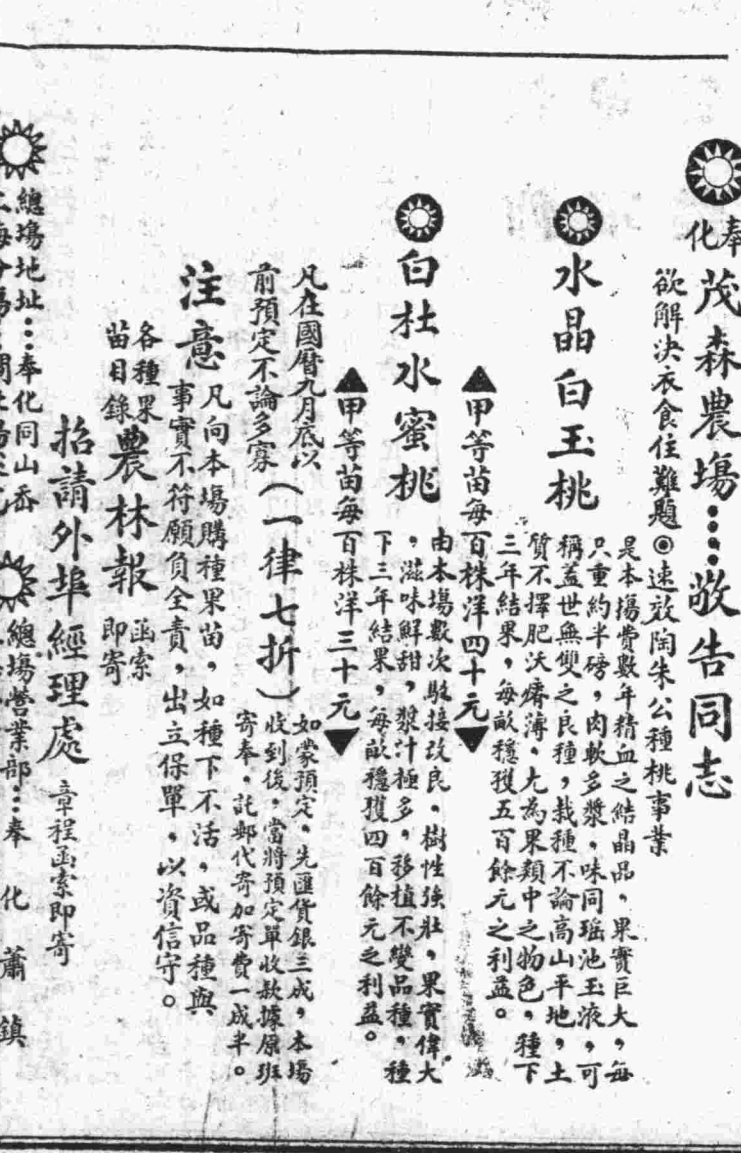 奉化 茂森農場……敬告同志
欲解決衣食住難題◎速效陶朱公種桃事業
水晶白玉桃
是本場費數年精血之結晶品，果實巨大，每
只重約半磅，肉軟多漿，味同瑤池玉液，可
稱蓋世無雙之良種，栽種不論高山平地，土
質不擇肥沃瘠薄，尤為果類中之物色，種下
三年結果，每畝穩獲五百餘元之利益。
▲甲等苗每百株洋四十元▼
白杜水蜜桃
由本塲數次駁接改良，樹性強壯，果實偉大
，滋味鮮甜，漿汁極多，移植不變品種，種
下三年結果，每畝穩獲四百餘元之利益。
▲甲等苗每百株洋三十元▼
凡在國曆九月底以
前預定不論多寡
（一律七折）
如蒙預定，先匯貨銀三成，本塲
收到後，當將預定單收款據原班
寄奉，託郵代寄加寄費一成半。
注意
凡向本塲購種果苗，如種下不活，或品種與
事實不符願負全責，出立保單，以資信守。
各種果苗目錄 農林報 函索即寄
招請外埠經理處 章程函索即寄
總塲地址…奉化同山岙
總塲營業部…奉化蕭鎮